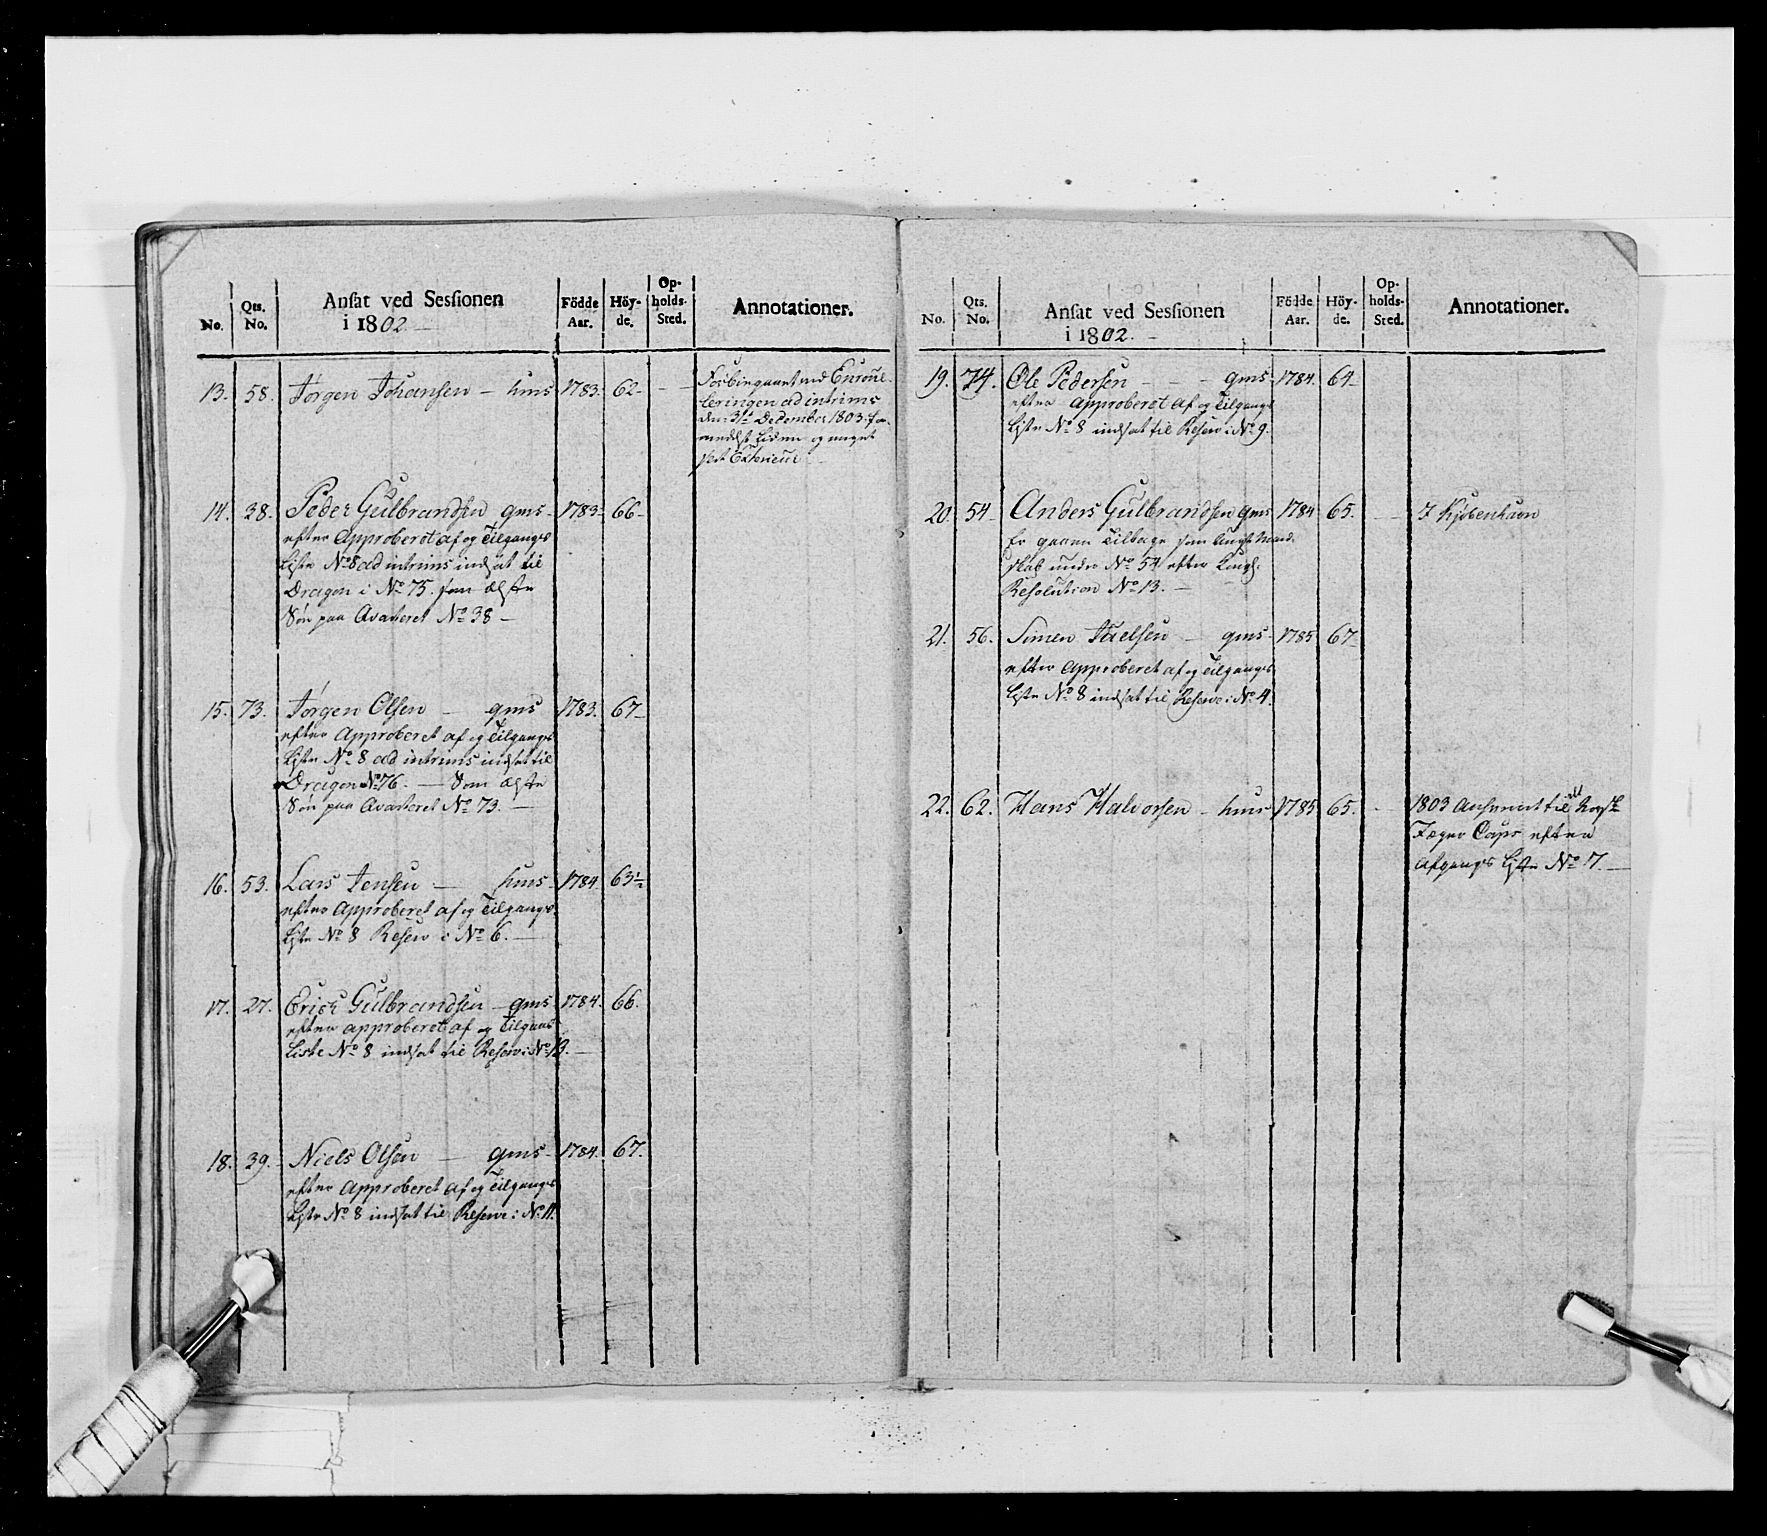 No. Qts. No. Ansat ved Sessionen i 1802 Födde Aar. Höy-de. Op-holds-Sted. Annotationer.
13. 58. Jørgen Johansen — hms 1783. 62 —
Forbiegaaet ved Enroul-
leringen ad intrims
den 31te December 1803. for-
medelst liden og meget
slet Exterieur
14. 38. Peder Gulbrandsen gms 1783 66
efter Approberet af og Tilgangs
Liste No 8 ad intrims indsat til
Dragon i No 75. som ælste
Søn paa Qvarteret No 38 —
15. 73. Jørgen Olsen — gms 1783. 67
efter Approberet af og Tilgangs
Liste No 8 ad intrims indsat til
Dragon No 76. — Som ælste
Søn paa Qvarteret No 73. —
16. 53. Lars Jensen — hms 1784 63½
efter Approberet af og Tilgangs
Liste No 8 Reserv i No 6. —
17. 27. Erich Gulbrandsen — gms 1784. 66.
efter approberet af og Tilgans
Liste No 8 indsat til Reserv: No 13. —
18. 39. Niels Olsen — gms 1784. 67.
efter Approberet af og Tilgangs
Liste No 8 indsat til Reserve: No 11.
No. Qts. No. Ansat ved Sessionen i 1802. Födde Aar. Höy-de. Op-holds-Sted. Annotationer.
19. 74. Ole Pedersen — gms 1784. 64
efter Approberet af og Tilgangs
Liste No 8 indsat til Reserv: No 9.
20. 54 Anders Gulbrandsen gms 1784 65. — I Kjøbenhavn
Er gaaen tilbage som Mand-
skab under No 54 efter
Resolution No 13. —
21. 56. Simen — gms 1785 67
efter Approberet af og Tilgangs
Liste No 8 indsat til Reserve: No 4.
22. 62. Hans Halvorsen — hms 1785 65. —
1803 til det Norske
Jæger Corps efter
Afgangs Liste No 7. —